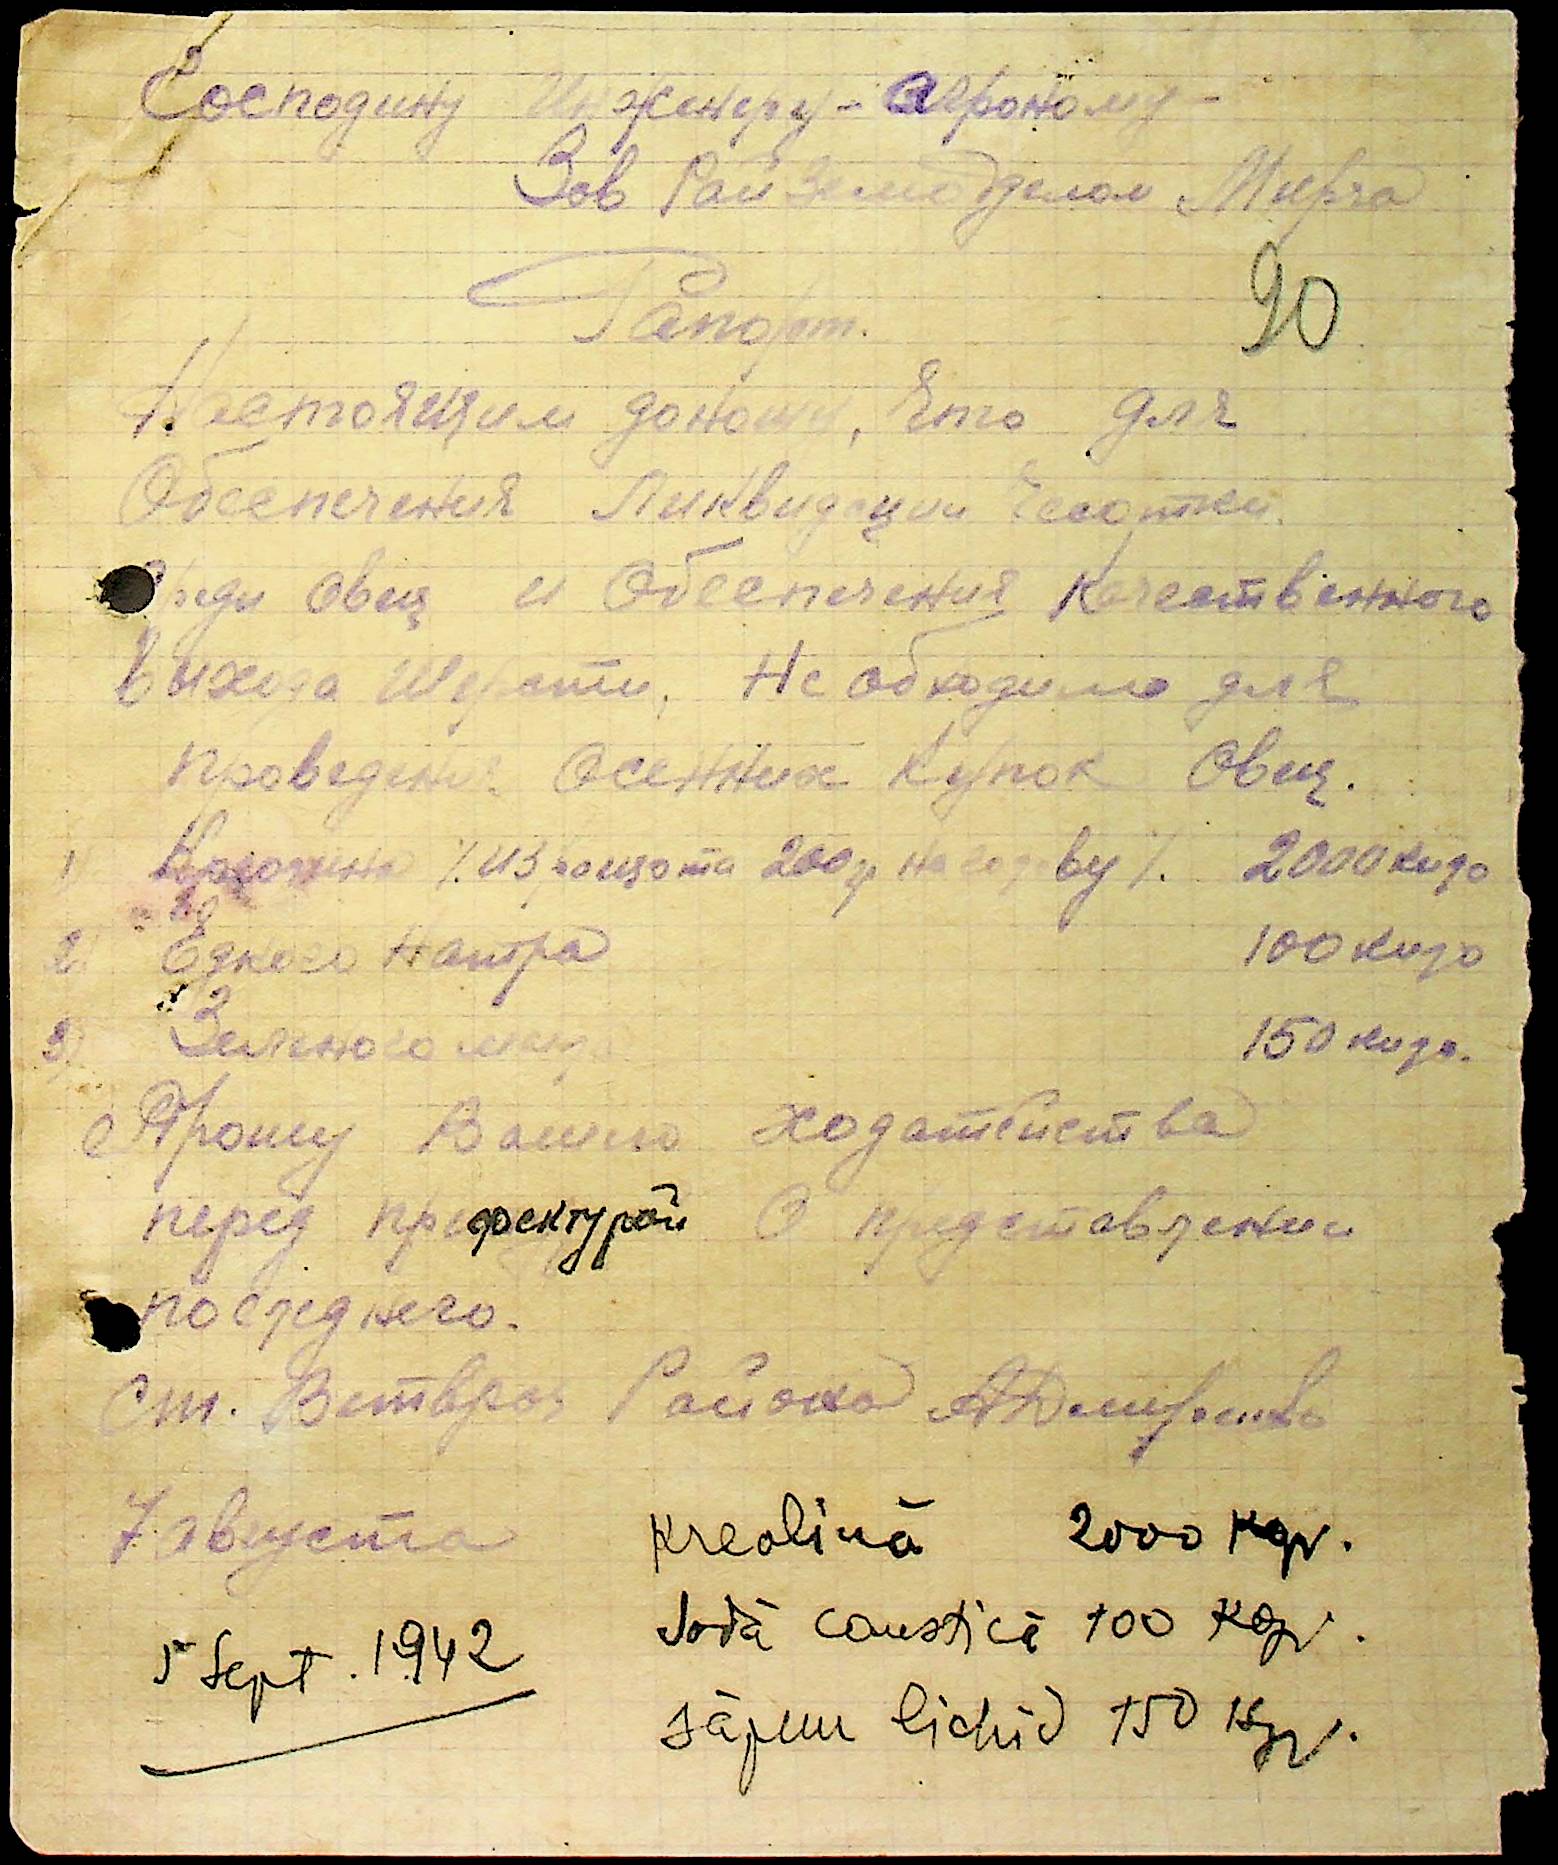 Господину Инженеру-агроному-
Зав Райземотделом Мирча
Рапорт.
90
Настоящим доношу, что для
Обеспечения Ликвидации Чесотки
среди овец и Обеспечения Качественного
Выхода Шерсти, Необходимо для
проведения Осенних Купок Овец.
1) /. из расчета 200 гр на голову /. 2000 кило
2) Едкого натра 100 кило
3) Зеленого мыла 150 кило.
Прошу Вашего ходатейства
перед префектурой О представлении
последнего.
Ст. Ветврач Района
7 августа
Kreolină 2000 Kgr.
5 Sept. 1942
Sodă caustică 100 Kgr.
săpun lichid 150 Kgr.